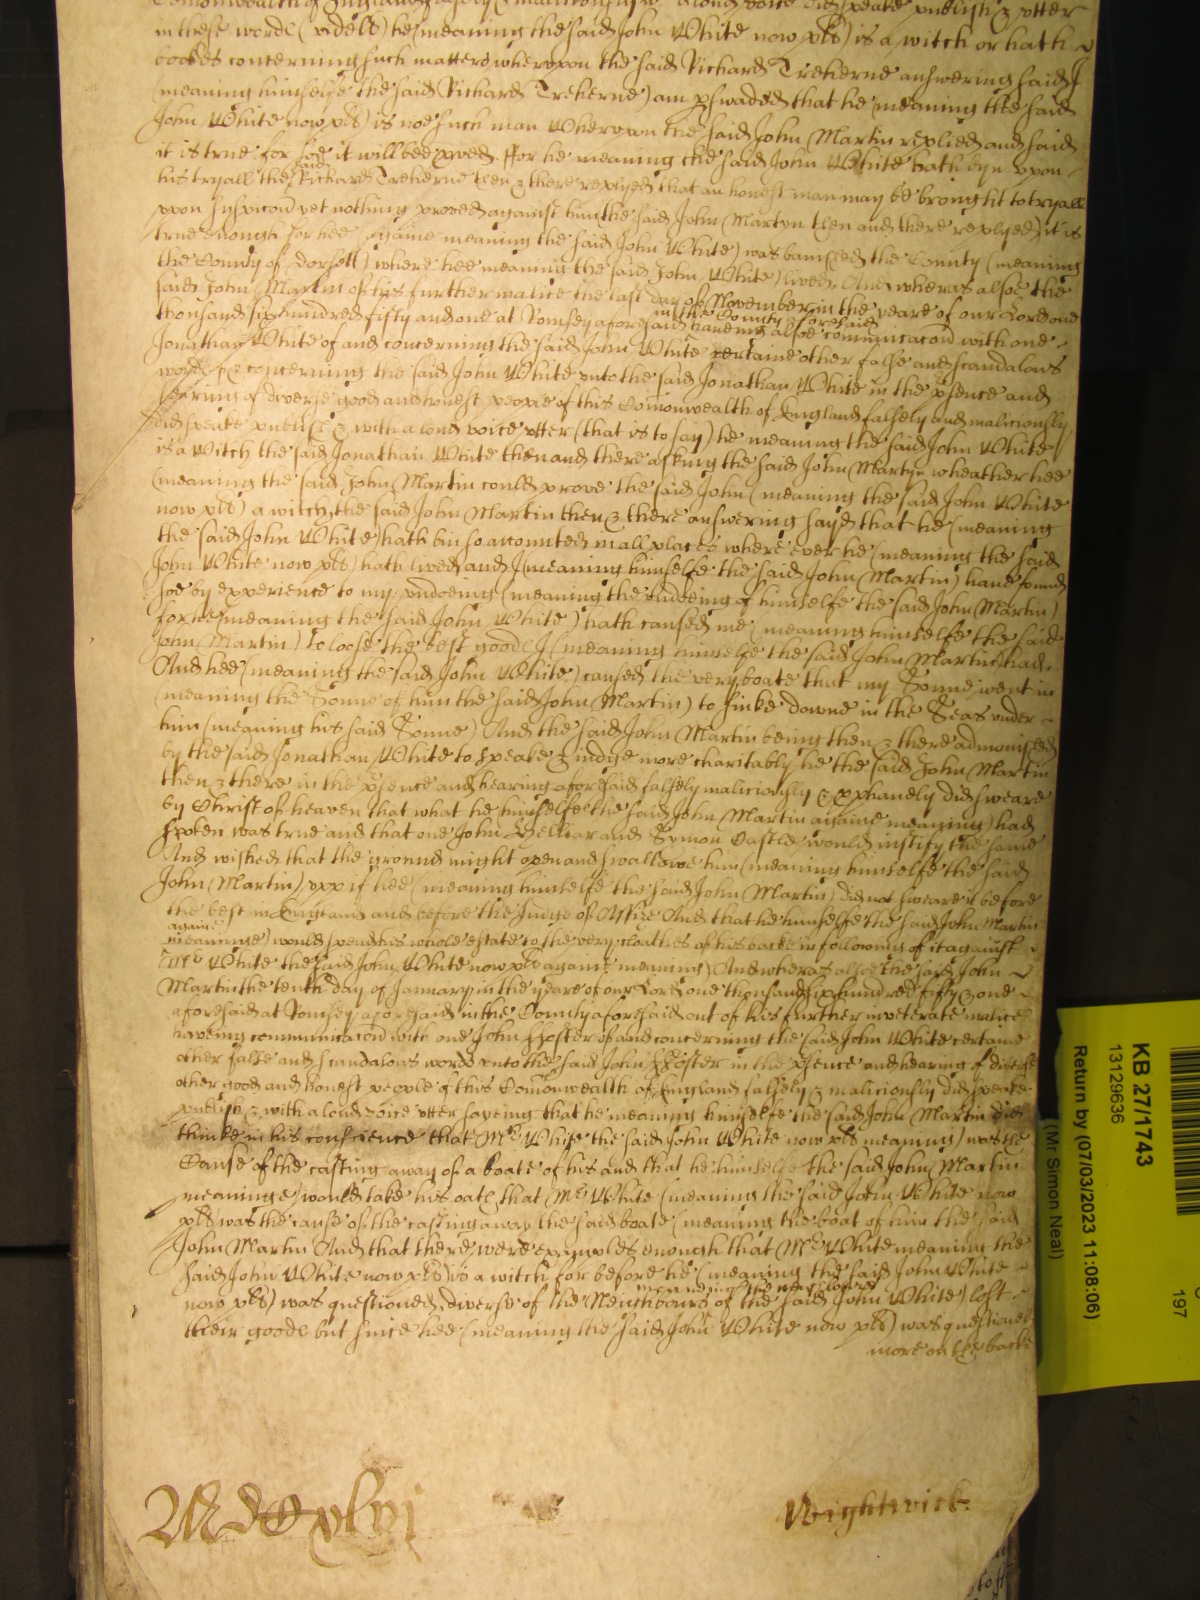 Comonwealth of England falsely & maliciously w a loud voice did speake publish & utter
in these words (videlt) he (meaning the said John White now plt) is a witch or hath
bookes concerning such matters wherupon the said Richard Treherne answering said I
(meaning himselfe the said Richard Treherne) am pswaded that he (meaning the said
John White now plt) is noe such man Whereupon the said John Martin replied and said
it is true for soe it will bee proved. ffor he meaning the said John White hath byn upon
his tryall the said Richard Treherne then & there replyed that an honest man may be brought to tryall
upon suspicion yet nothing proved against him the said John Martyn then and there replyed it is
true enough for hee againe meaning the said John White) was banished the County (meaning
the County of Dorsett) where hee meaning the said John White) lived. And wheras alsoe the
said John Martin of his further malice the last day of November in the yeare of our Lord one
thousand six hundred fifty and one at Romsey aforesaid in the County aforesaid haveing alsoe communicacon with one
Jonathan White of and concerning the said John White certaine other false and scandalous
words of & concerning the said John White unto the said Jonathan White in the psence and
hearing of diverse good and honest people of this Comonwealth of England falsely and maliciously
did speake publish & with a loud voice utter (that is to say) he meaning the said John White
is a Witch the said Jonathan White then and there asking the said John Martyn wheather hee
(meaning the said John Martin could prove the said John (meaning the said John White
now plt) a witch, the said John Martin then & there answering sayd that he (meaning
the said John White) hath bin so accounted in all places where ever he (meaning the said
John White now plt) hath lived and I (meaning himselfe the said John Martin) have found
soe by experience to my undoeing (meaning the undoeing of himselfe the said John Martin)
for he (meaning the said John White) hath caused me (meaning himselfe the said
John Martin) to loose the best goods I (meaning himselfe the said John Martin) had.
And hee (meaning the said John White) caused the very boate that my Sonne went in
(meaning the Sonne of him the said John Martin) to sinke downe in the Seas under
him (meaning his said Sonne) And the said John Martin being then & there admonished
by the said Jonathan White to speake & iudge more charitably he the said John Martin
then & there in the psence and hearing aforesaid falsely maliciously & pphanely did sweare
by Christ of heaven that what he himselfe (the said John Martin againe meaning) had
spoken was true and that one John Helliar and Symon Castle would iustify the same
And wished that the ground might open and swallowe him (meaning himselfe the said
John Martin) upp if hee (meaning himselfe the said John Martin) did not sweare it before
the best in England and before the Judge of Assize And that he himselfe the said John Martin
againe
meaninge) would spend his whole estate to the very cloathes of his backe in following of it against
Mr White the said John White now plt againe meaning) And wheras alsoe the said John
Martin the tenth day of January in the yeare of our Lord one thousand six hundred fifty & one
aforesaid at Romsey aforesaid in the County aforesaid out of his further inveterate malice
haveing communicacon with one John ffoster of and concerning the said John White certaine
other false and scandalous words unto the said John ffoster in the psence and hearing of diverse
other good and honest people of this Comonwealth of England falsely & maliciously did speake
publish & with a loud voice utter sayeing that he meaning himselfe the said John Martin did
thinke in his conscience that Mr White the said John White now plt meaning) was the
Cause of the casting away of a boate of his and that he himselfe the said John Martin
meaninge) would take his oath that Mr White (meaning the said John White now
plt) was the cause of the casting away the said boate (meaning the boat of him the said
John Martin And that there were examples enough that Mr White meaning the
said John White now plt) is a witch for before he (meaning the said John White
now plt) was questioned, diverse of the Neighbours of the said John White) lost
their goods but since hee (meaning the said John White now plt) was questioned
more on the backe
MdCxlvj
Wightwick.
KB 27/1743
13129636
Return by (07/03/2023 11:08:06)
(Mr Simon Neal)
197